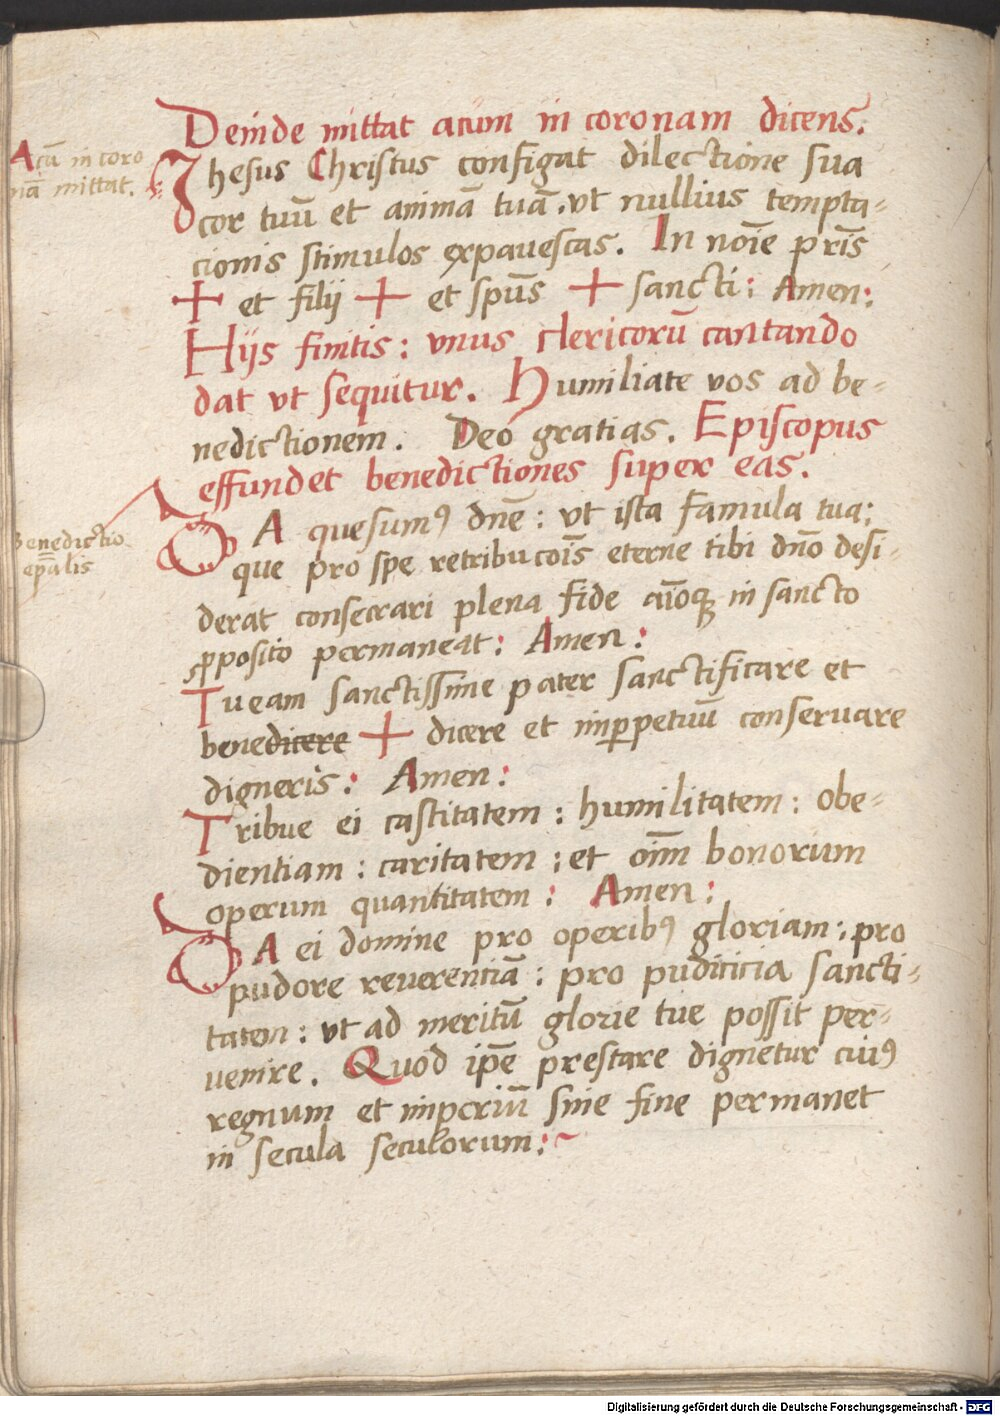 Deinde mittat acum in coronam dicens.
Acū in coro
nā mittat.
Ihesus Christus configat dilectione sua
cor tuū et animā tuā. vt nullius tempta-
cionis stimulos expauescas. In noīe pris̄
+ et filij + et spūs + sancti: Amen:
Hijs finitis: vnus clericorū cantando
dat vt sequitur. Humiliate vos ad be-
nedictionem. Deo gratias. Episcopus
effundet benedictiones super eas.
DA quesumꝰ dn̄e: vt ista famula tua:
Benedictio
ep̄alis
que pro spe retribucōis eterne tibi dn̄o desi-
derat consecrari plena fide aīoqꝫ in sancto
ꝓposito permaneat: Amen:
Tu eam sanctissime pater sanctificare et
benedicere + dicere et imꝑpetuū conseruare
digneris: Amen:
Tribue ei castitatem: humilitatem: obe-
dientiam: caritatem: et oīm bonorum
operum quantitatem: Amen:
DA ei domine pro operibꝰ gloriam: pro
pudore reuerentiā: pro pudicicia sancti-
tatem: vt ad meritū glorie tue possit per-
uenire. Quod ip̄e prestare dignetur cuiꝰ
regnum et imperiū sine fine permanet
in secula seculorum:~
Digitalisierung gefördert durch die Deutsche Forschungsgemeinschaft - DFG